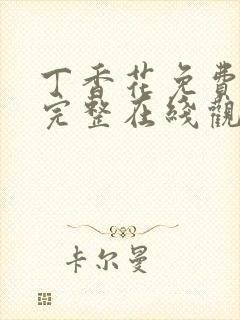 丁香花免費
完整在綫觀
卡尔曼